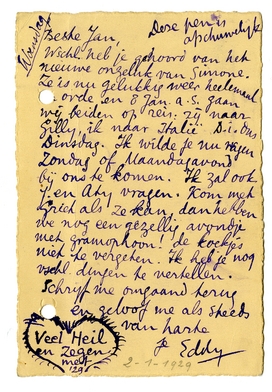 Woensdag
Deze pen is
afschuwelijk
Beste Jan,
Wschl. heb je gehoord van het
nieuwe ongeluk van Simone.
Ze is nu gelukkig weer heelemaal
in orde en 8 Jan. a.s. gaan
wij beiden op reis: zij naar
Gilly, ik naar Italië. D.i. ons
Dinsdag. Ik wilde je nu tegen
Zondag of Maandagavond
bij ons te komen. Ik zal ook
J. en Aty vragen. Kom met
Grietals ze kan, dan hebben
we nog een gezellig avondje
met gramophoon! de kockjes
niet te vergeten. Ik heb je nog
vschl. dingen te vertellen.
Schrijf me omgaand terug
en geloof me als steeds
van harte
je Eddy
Veel Heil
en Zegen
met
'29
2-1-1929